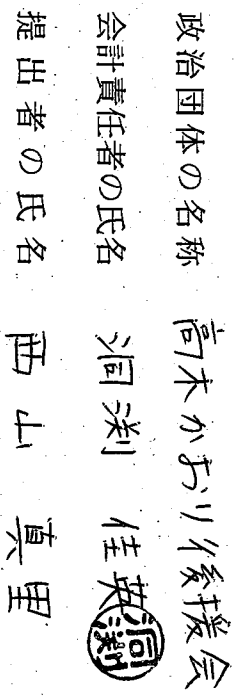 政治団体の名称 高木かおり後援会
会計責任者の氏名 洞渕 佳英
洞渕
提出者の氏名 西山 真里